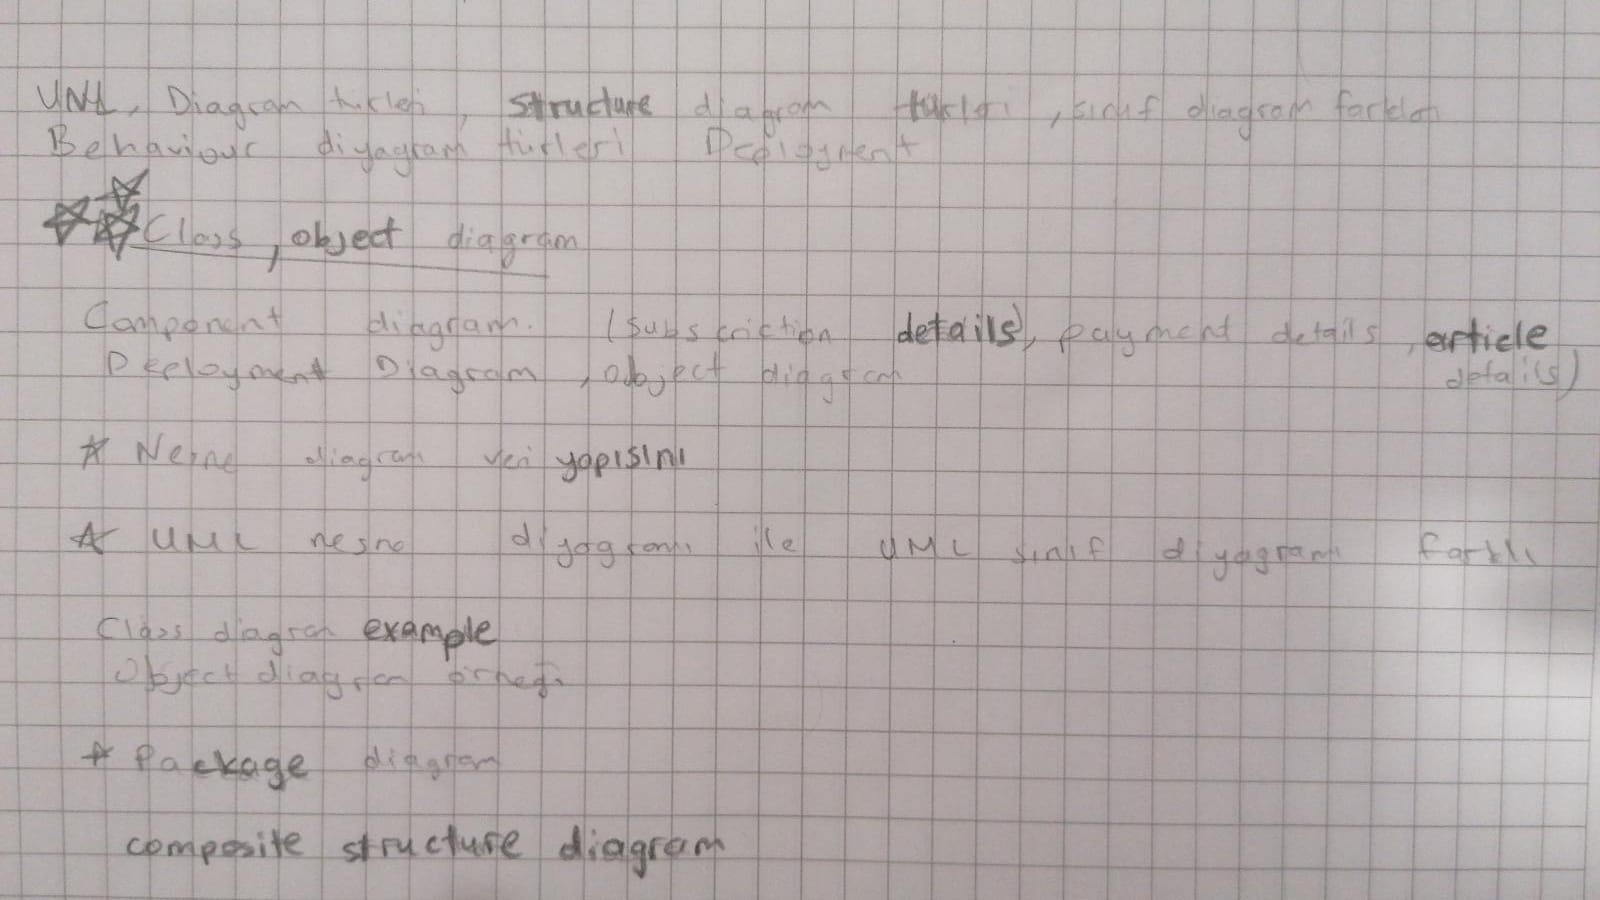 UML, Diagram türleri, structure diagram türleri, sınıf diagram farkları
Behaviour diyagram türleri Deployment
Class, object diagram
Component diagram. (Subscriction details), payment details, article
details)
Deployment Diagram, object diagram
* Nesne diagram veri yapısını
* UML nesne diyagramı ile UML sınıf diyagramı farklı
Class diagram example
Object diagram örneği
* Package diagram
composite structure diagram